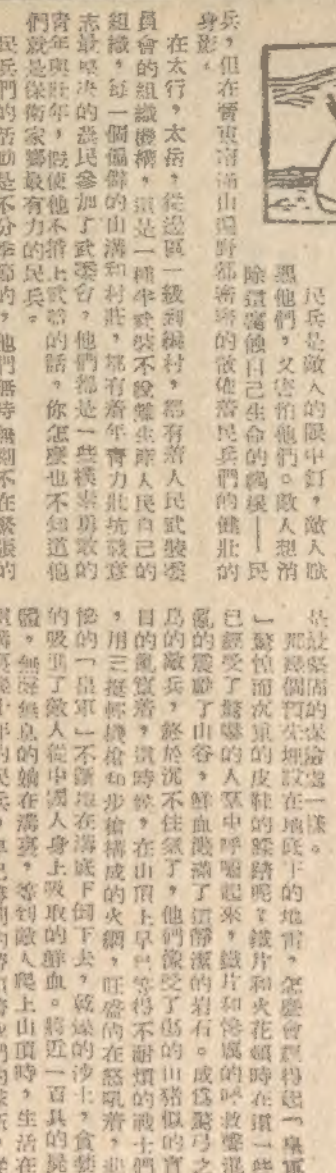 民兵是敵人的眼中釘，敵人憎
惡他們，又害怕他們。敵人想消
除這腐蝕自己生命的禍根——民
兵，但在晉東南滿山遍野都密密的散佈着民兵們的健壯的
身影。
在太行，太岳，從邊區一級到編村，都有着人民武裝委
員會的組織機構，這是一種半武裝不脫離生產人民自己的
組織，每一個偏僻的山溝和村莊，都有着年青力壯抗戰意
志最堅决的農民參加了武委會，他們都是一些樸素勇敢的
青年與壯年，假使他不揹上武器的話，你怎麼也不知道他
們就是保衛家鄉最有力的民兵。
民兵們的活動是不分季節的，他們無時無刻不在緊張的
是最堅固的保險處一樣。
那幾個預先埋設在地底下的地雷，怎麼會經得起「皇軍
」驚惶而沉重的皮鞋的蹂踏呢？鐵片和火花頓時在這一些
已經受了驚嚇的人羣中呼嘯起來，鐵片和慘厲的呼救聲混
亂的震動了山谷，鮮血濺滿了這靜潔的岩石。成爲驚弓之
鳥的敵兵，終於沉不住氣了，他們像受了傷的山豬似的盲
目的亂竄着，這時候，在山頂上早已等得不耐煩的戰士們
，用三挺輕機槍和步槍構成的火網，旺盛的在怒吼着，
的「皇軍」不斷地在溝底下倒下去，乾燥的沙土，貪婪
的吸吮了敵人從中國人身上吸取的鮮血。將近一百具的屍
體，無聲無息的躺在溝裏，等到敵人爬上山頂時，生活在